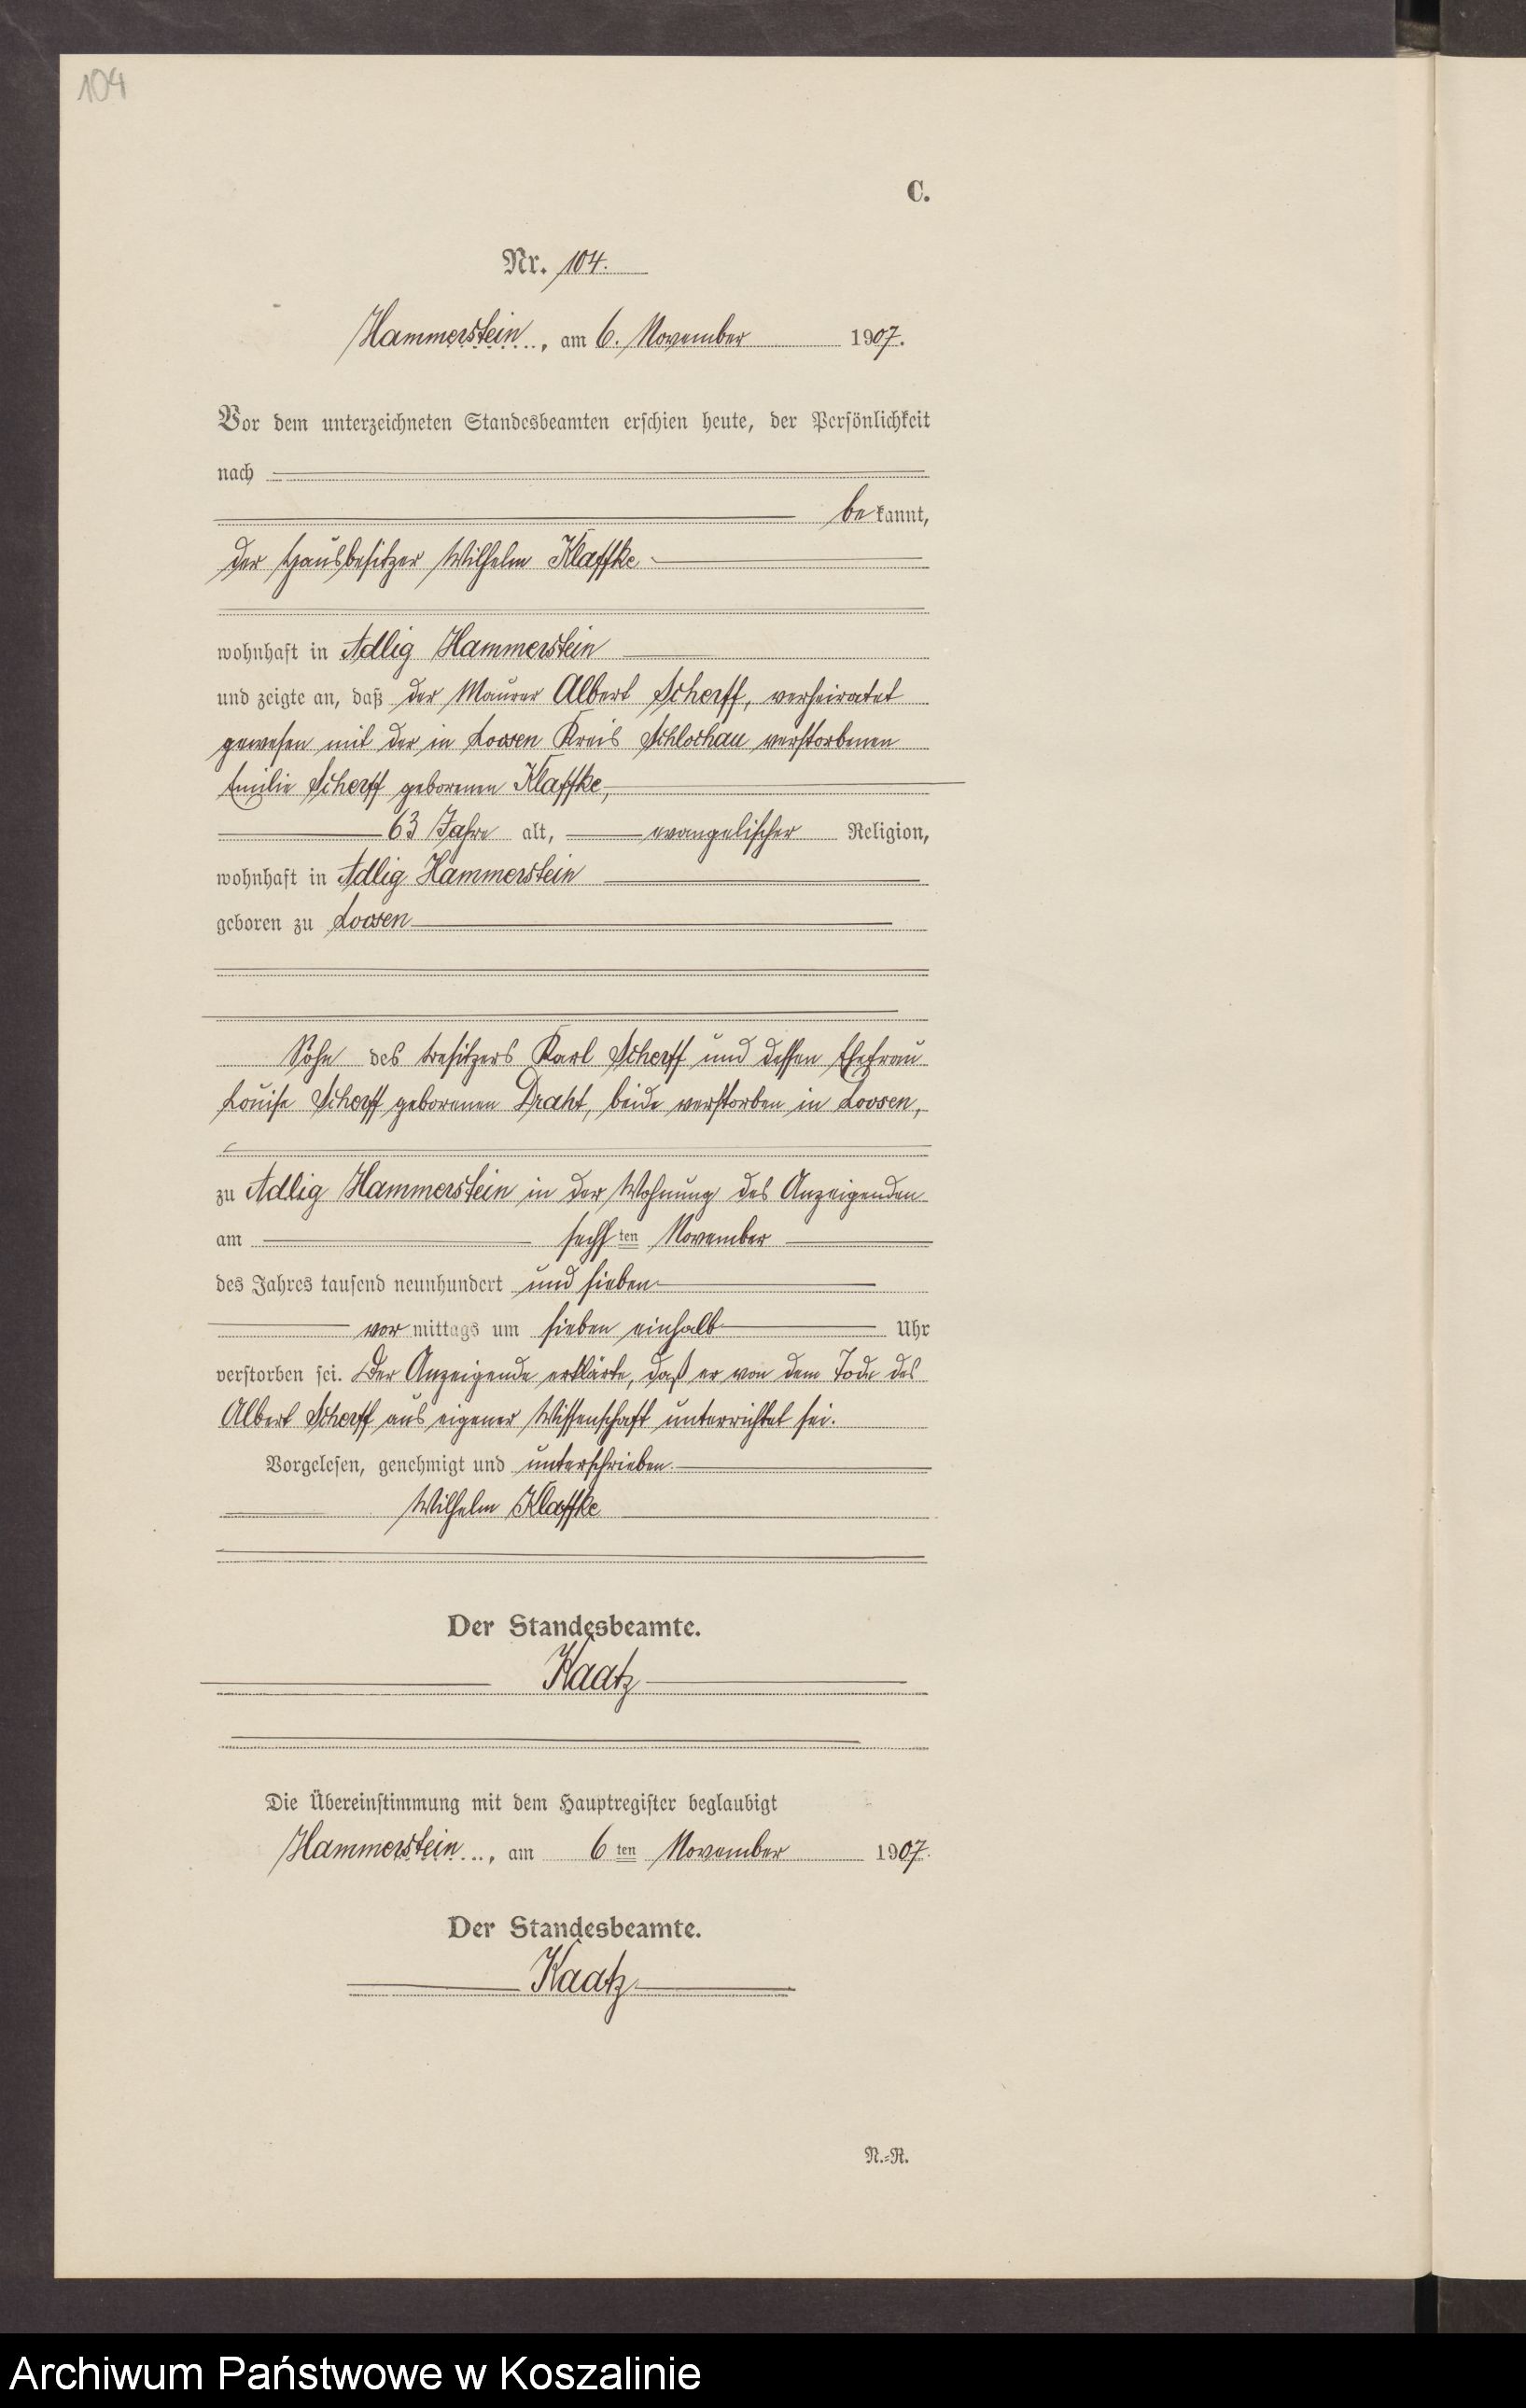 104
C.
Nr. 104.
Hammerstein, am 6. November 1907.
Vor dem unterzeichneten Standesbeamten erschien heute, der Persönlichkeit
nach
bekannt,
der Hausbesitzer Wilhelm Klaffke
wohnhaft in Adlig Hammerstein
und zeigte an, daß der Maurer Albert Scherff, verheiratet
gewesen mit der in Loosen Kreis Schlochau verstorbenen
Emilie Scherff geborenen Klaffke,
63 Jahre alt, evangelischer Religion,
wohnhaft in Adlig Hammerstein
geboren zu Loosen
Sohn des Besitzers Karl Scherff und dessen Ehefrau
Louise Scherff geborenen Draht, beide verstorben in Loosen,
zu Adlig Hammerstein in der Wohnung des Anzeigenden
am sechsten November
des Jahres tausend neunhundert und sieben
vormittags um sieben einhalb Uhr
verstorben sei. Der Anzeigende erklärte, daß er von dem Tode des
Albert Scherff aus eigener Wissenschaft unterrichtet sei.
Vorgelesen, genehmigt und unterschrieben.
Wilhelm Klaffke
Der Standesbeamte.
Kaatz
Die Übereinstimmung mit dem Hauptregister beglaubigt
Hammerstein, am 6ten November 1907.
Der Standesbeamte.
Kaatz
N.-R.
Archiwum Państwowe w Koszalinie